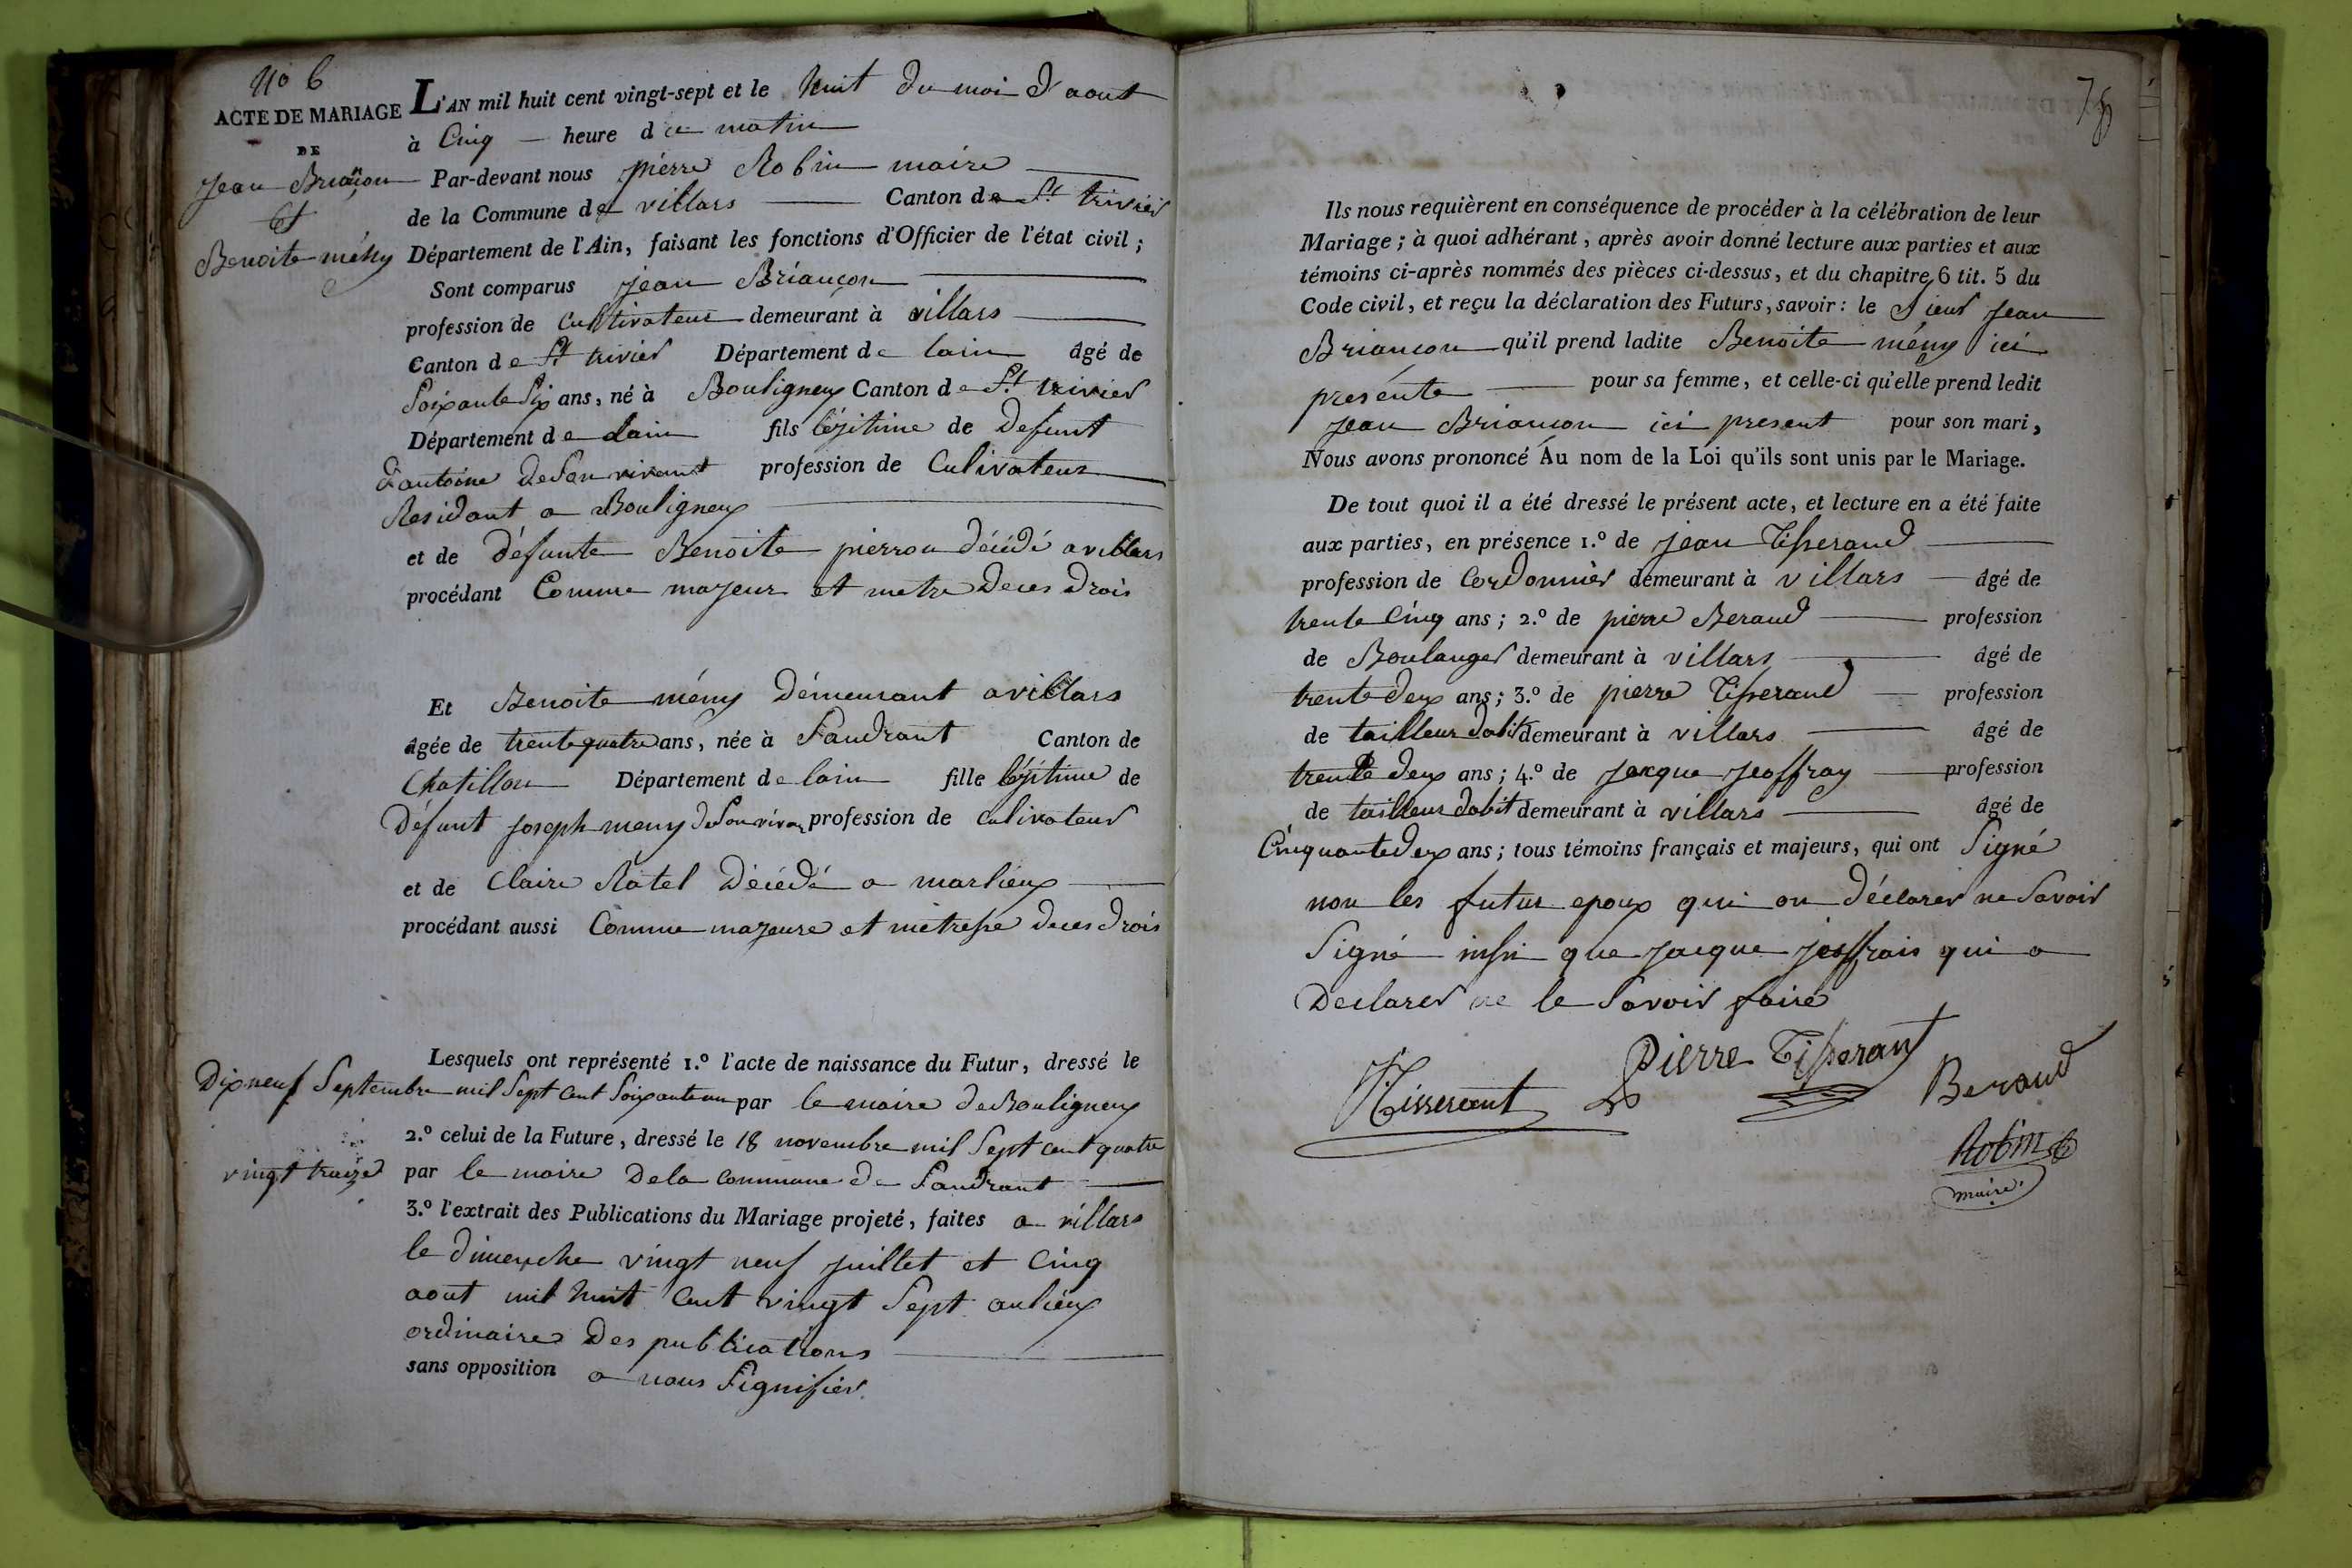 No 6
ACTE DE MARIAGE
DE
Jean Briançon
Et
Benoite mény
L'AN mil huit cent vingt-sept et le huit du moi d'aout
à Cinq — heure du matin
Par-devant nous pierre Robin maire
de la Commune de villars — Canton de St. trivier
Département de l'Ain, faisant les fonctions d'Officier de l'état civil ;
Sont comparus jean Briançon
profession de Cultivateur demeurant à villars
Canton de St trivier Département de lain âgé de
Soixante Six ans, né à Bouligneux Canton de St. trivier
Département de lain fils légitime de Defunt
antoine de Son vivant profession de Culivateur
Residant a Bouligneux
et de défunte Benoite pierron décédé a villars
procédant Comme majeur et metre de ces drois
Et Benoite mény démeurant a villars
âgée de trente quatre ans, née à Sandrant Canton de
Chatillon Département de lain fille légitime de
défunt joseph meny de Son vivan profession de culivateur
et de Claire Ratel décédé a marlieux
procédant aussi Comme majeure et metresse de ces drois
Lesquels ont représenté 1.º l'acte de naissance du Futur, dressé le
Dix neuf Septembre mil Sept Cent Soixante un par le maire de Bouligneux
2.º celui de la Future, dressé le 18 novembre mil Sept cent quatre
vingt traize par le maire de la commune de Sandrant
3.º l'extrait des Publications du Mariage projeté, faites a villars
le dimenche vingt neuf juillet et Cinq
aout mil huit Cent vingt Sept au lieux
ordinaire des publications
sans opposition a nous Signifier
78
Ils nous requièrent en conséquence de procéder à la célébration de leur
Mariage ; à quoi adhérant, après avoir donné lecture aux parties et aux
témoins ci-après nommés des pièces ci-dessus, et du chapitre 6 tit. 5 du
Code civil, et reçu la déclaration des Futurs, savoir : le Sieur Jean
Briancon qu'il prend ladite Benoite mény ici
presénte — pour sa femme, et celle-ci qu'elle prend ledit
jean Briancon ici present pour son mari,
Nous avons prononcé Au nom de la Loi qu'ils sont unis par le Mariage.
De tout quoi il a été dressé le présent acte, et lecture en a été faite
aux parties, en présence 1.º de jean Tisserand
profession de Cordonnier demeurant à villars — âgé de
trente Cinq ans ; 2.º de pierre Beraud — profession
de Boulanger demeurant à villars — âgé de
trente deux ans ; 3.º de pierre Tisserand — profession
de tailleur dabit demeurant à villars — âgé de
trente deux ans ; 4.º de jacque jeoffray — profession
de tailleur dabit demeurant à villars — âgé de
Cinquante deux ans ; tous témoins français et majeurs, qui ont Signé
non les futur epoux qui on déclarer ne Savoir
Signé insin que jacque jeoffrais qui a
Declarer ne le Savoir faire
Tisserant Pierre Tisserant Beraud
Robin
maire.